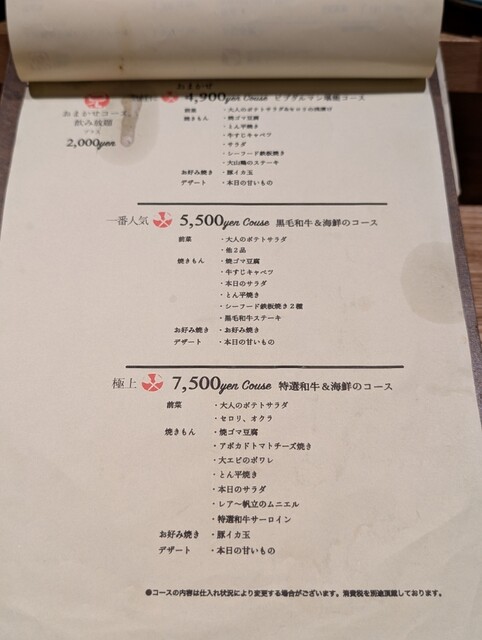 おまかせ
4,900yen Couse
おまかせコース、
飲み放題
プラス
2,000yen
・大人のポテトサラダ&セロリの浅漬け
焼きもん ・焼ゴマ豆腐
・とん平焼き
・牛すじキャベツ
・サラダ
・シーフード鉄板焼き
・大山鶏のステーキ
お好み焼き ・豚イカ玉
デザート ・本日の甘いもの
一番人気 5,500yen Couse 黒毛和牛&海鮮のコース
前菜 ・大人のポテトサラダ
・他2品
焼きもん ・焼ゴマ豆腐
・牛すじキャベツ
・本日のサラダ
・とん平焼き
・シーフード鉄板焼き2種
・黒毛和牛ステーキ
お好み焼き ・お好み焼き
デザート ・本日の甘いもの
極上 7,500yen Couse 特選和牛&海鮮のコース
前菜 ・大人のポテトサラダ
・セロリ、オクラ
焼きもん ・焼ゴマ豆腐
・アボカドトマトチーズ焼き
・大エビのポワレ
・とん平焼き
・本日のサラダ
・レア〜帆立のムニエル
・特選和牛サーロイン
お好み焼き ・豚イカ玉
デザート ・本日の甘いもの
●コースの内容は仕入れ状況により変更する場合がございます。消費税を別途頂戴しております。